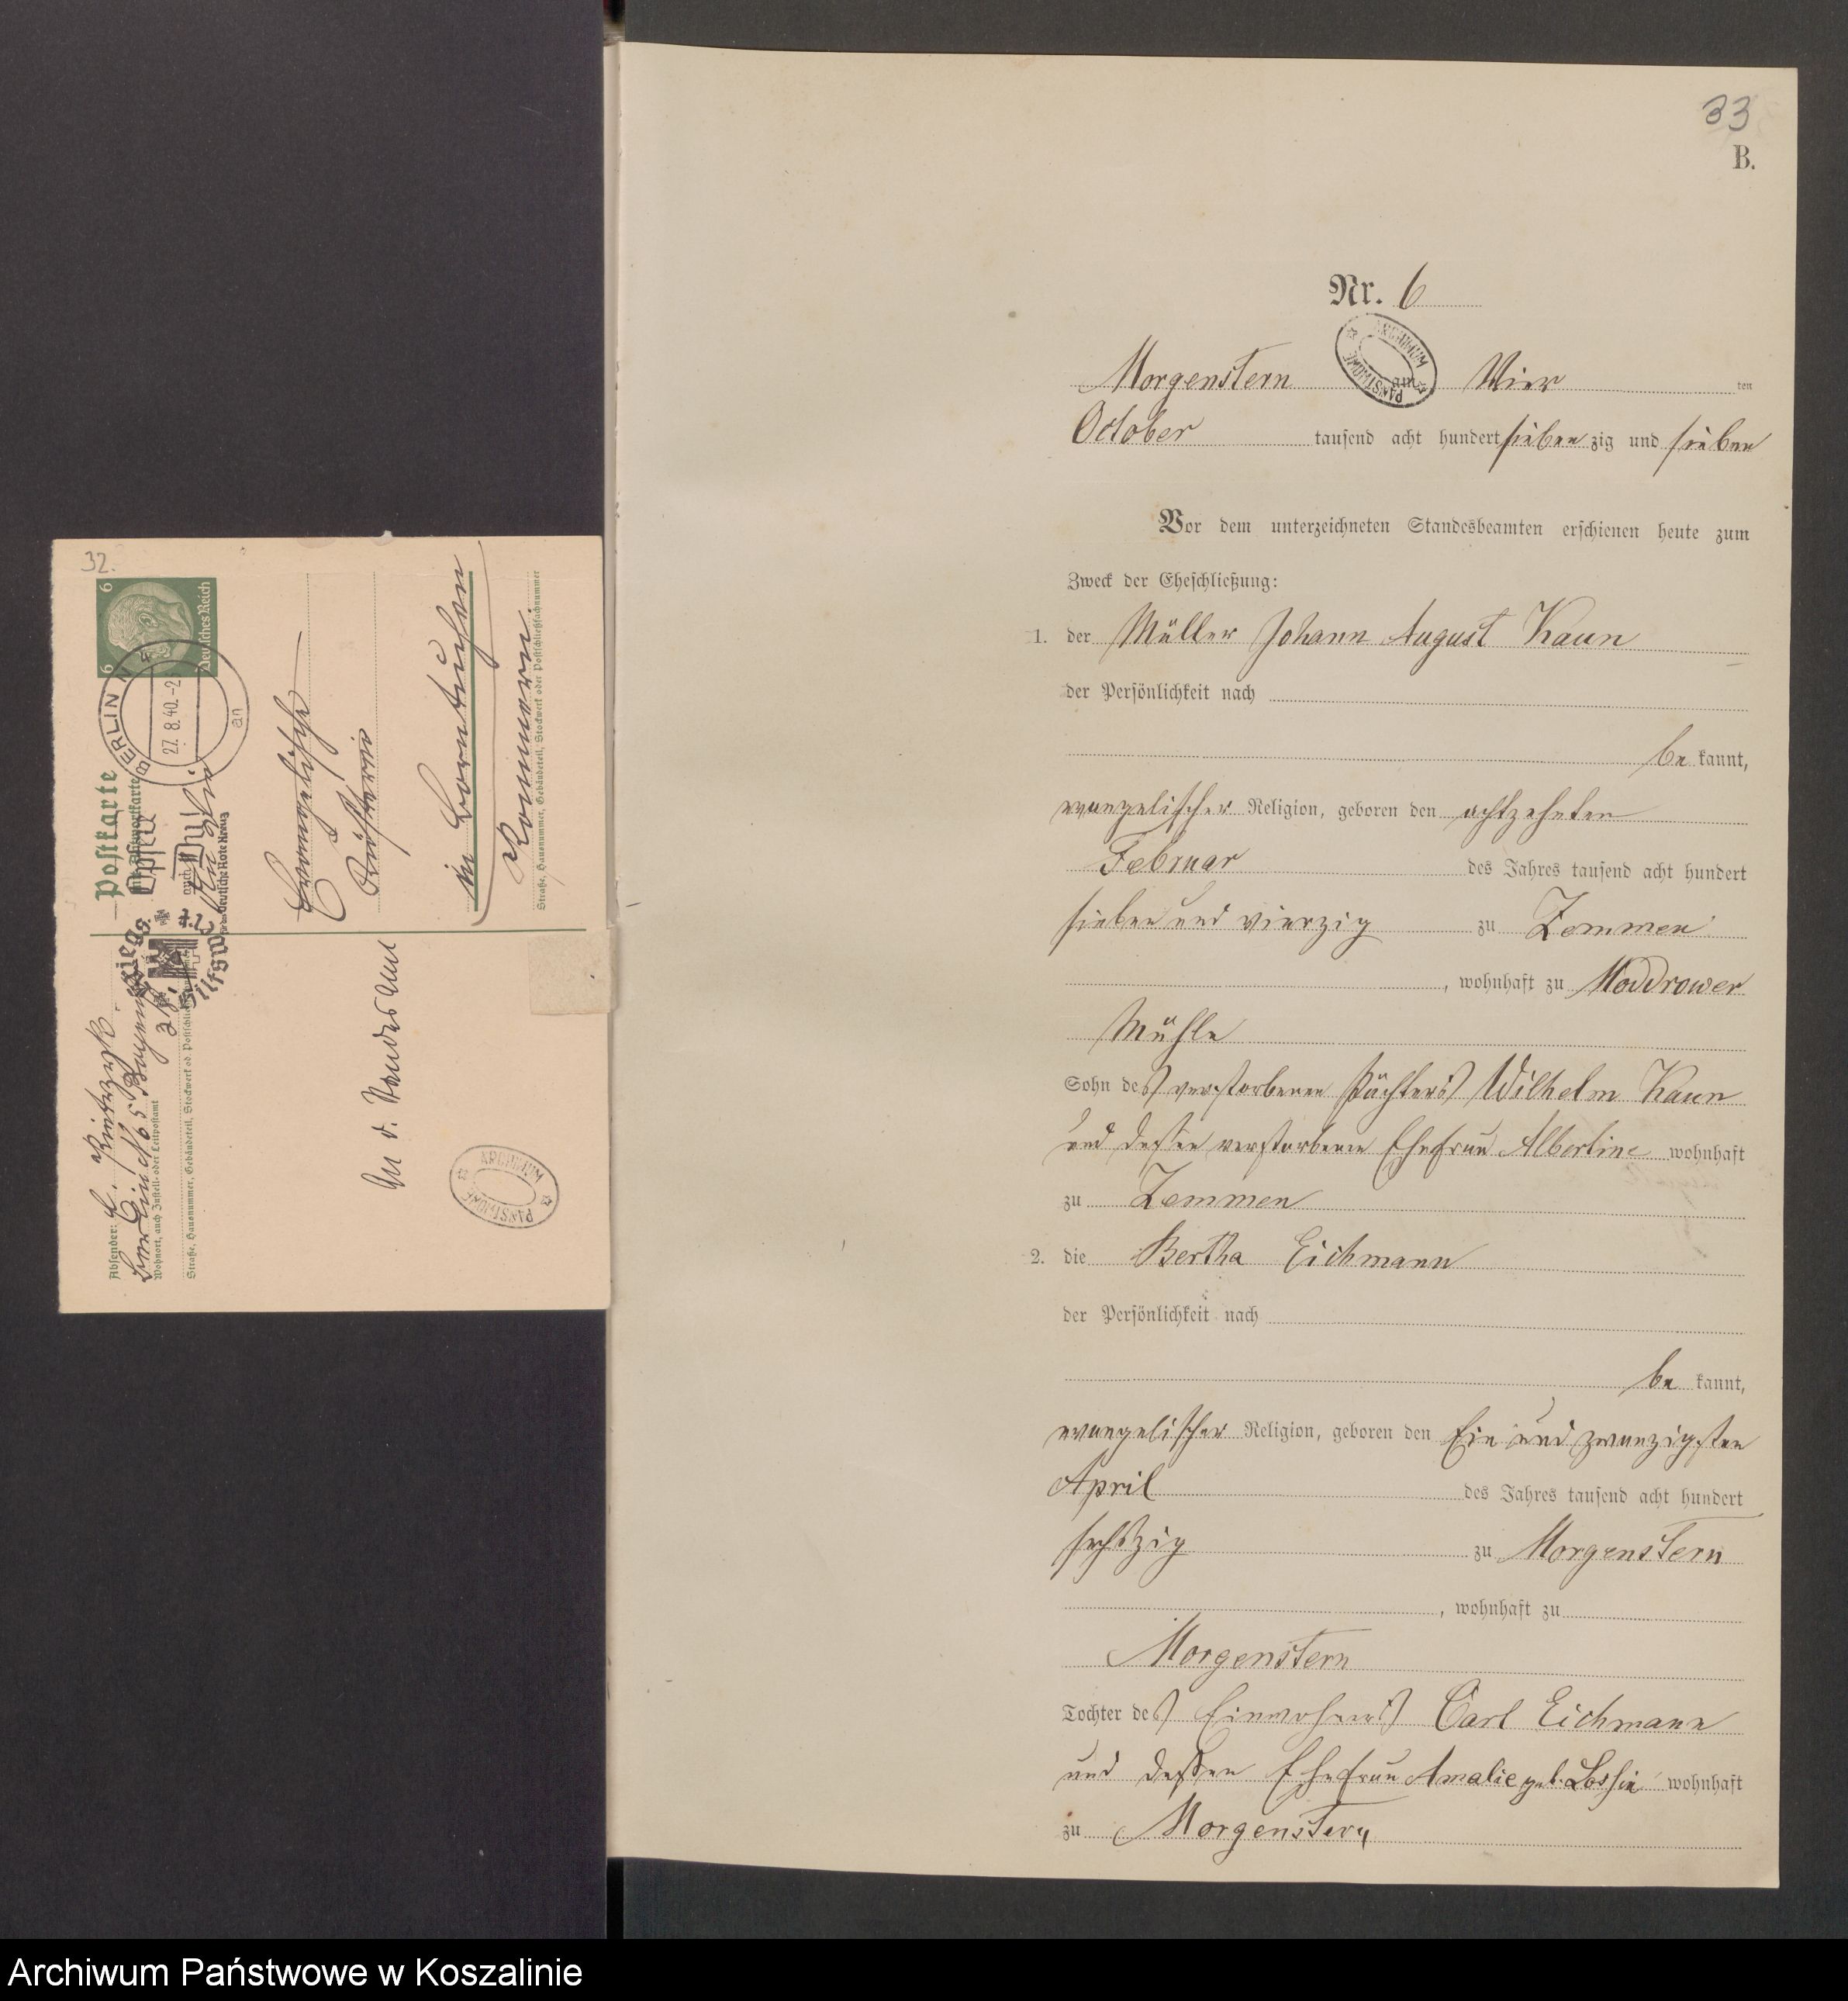 32.
Postkarte
mit Antwortkarte
6 6
Deutsches Reich
BERLIN N 4
27. 8. 40.-2
an
Opfer
auch Du!
Deutsche Rote Kreuz
Kriegs
Hilfsw
Evangelische
Küsterei
in Borntuchen
Pommern.
Straße, Hausnummer, Gebäudeteil, Stockwerk oder Postschließfachnummer
Absender:
Berlin N 65
Wohnort, auch Zustell- oder Leitpostamt
Straße, Hausnummer, Gebäudeteil, Stockwerk od. Postschließ
An d. Standesamt
ARCHIWUM PAŃSTWOWE
33
B.
Nr. 6
ARCHIWUM PAŃSTWOWE
Morgenstern am Vier ten
October tausend acht hundert sieben zig und sieben
Vor dem unterzeichneten Standesbeamten erschienen heute zum
Zweck der Eheschließung:
1. der Müller Johann August Kaun
der Persönlichkeit nach
be kannt,
evangelischer Religion, geboren den achtzehnten
Februar des Jahres tausend acht hundert
sieben und vierzig zu Zemmen
, wohnhaft zu Moddrower
Mühle
Sohn des verstorbenen Pächters Wilhelm Kaun
und dessen verstorbenen Ehefrau Albertine wohnhaft
zu Zemmen
2. die Bertha Eichmann
der Persönlichkeit nach
be kannt,
evangelischer Religion, geboren den Ein und zwanzigsten
April des Jahres tausend acht hundert
sechszig zu Morgenstern
, wohnhaft zu
Morgenstern
Tochter des Einwohners Carl Eichmann
und dessen Ehefrau Amalie geb. Lossin wohnhaft
zu Morgenstern
Archiwum Państwowe w Koszalinie